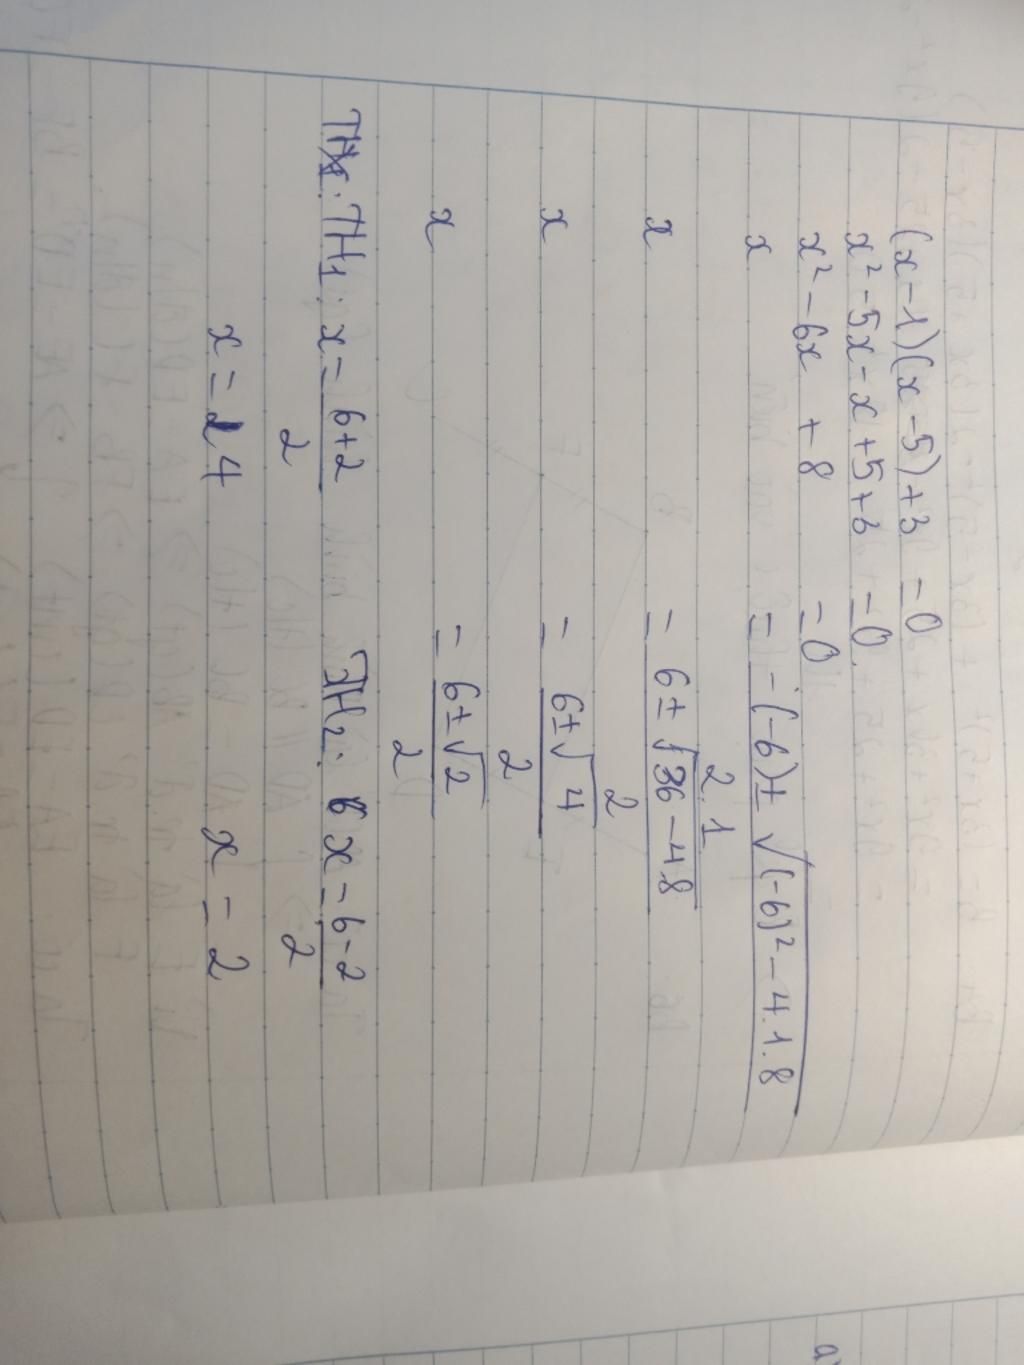 (x-1)(x-5)+3 = 0
x² - 5x - x + 5 + 3 = 0
x² - 6x + 8 = 0
x = -(-6) ± √(-6)² - 4.1.8
2.1
x = 6 ± √36 - 48
2
x = 6 ± √4
2
x = 6 ± √2
2
TH1: x = 6+2 TH2: x = 6-2
2 2
x = 4 x = 2